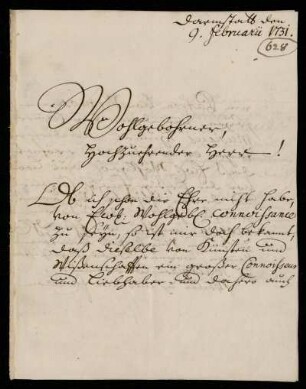 Darmstatt den
9. Februarii 1731.
628
Wohlgebohrner,
Hochzuehrender Herr!
Ob ich schon die Ehre nicht habe,
von Ewb. Wohlgebl. Connoissance
zu seyn, so ist mir doch bekannt,
daß dieselbe von Künsten und
Wißenschafften ein großer Connoisseur
und Liebhaber und dahero auch